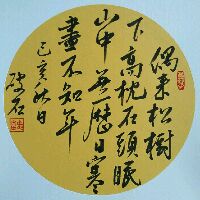 偶來松樹
下高枕石頭眠
山中無曆日寒
盡不知年
己亥秋日